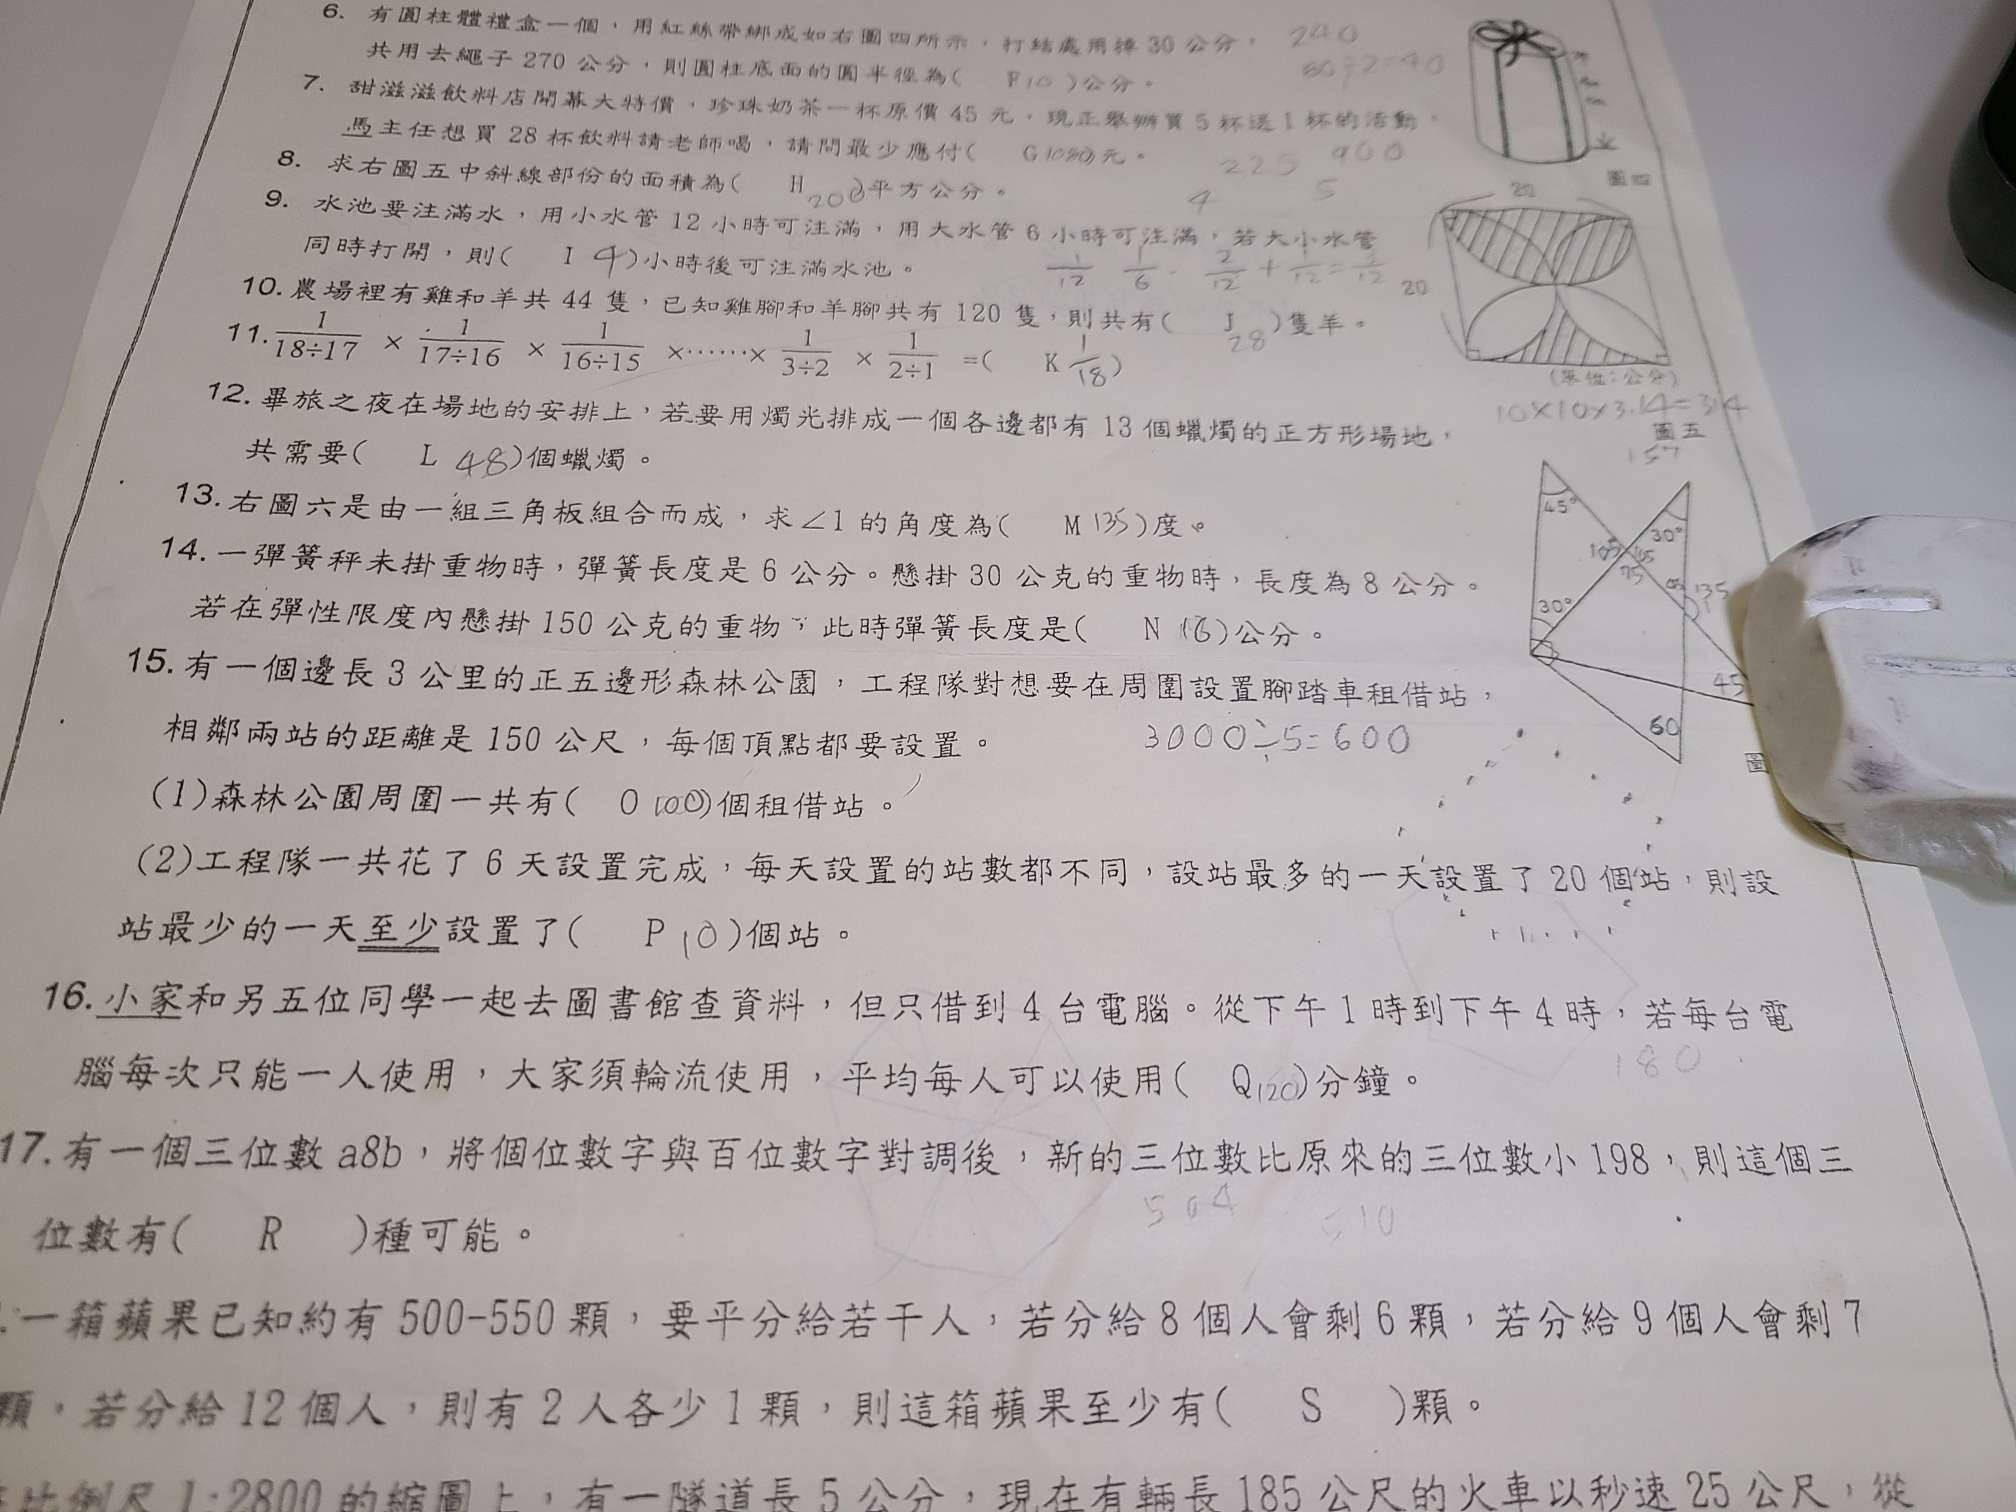 6. 有圓柱體禮盒一個，用紅絲帶綁成如右圖四所示，打結處用掉30公分， 240
共用去繩子270公分，則圓柱底面的圓半徑為( F10 )公分。 60÷2=40
7. 甜滋滋飲料店開幕大特價，珍珠奶茶一杯原價45元，現正舉辦買5杯送1杯的活動，
馬主任想買28杯飲料請老師喝，請問最少應付( G1080)元。 225 900
圖四
8. 求右圖五中斜線部份的面積為( H 200)平方公分。 4 5
20
9. 水池要注滿水，用小水管12小時可注滿，用大水管6小時可注滿，若大小水管
同時打開，則( I 4)小時後可注滿水池。 1/12 1/6 2/12+1/12=3/12 20
10. 農場裡有雞和羊共44隻，已知雞腳和羊腳共有120隻，則共有( J 28 )隻羊。
11. 1/18÷17 × 1/17÷16 × 1/16÷15 ×……× 1/3÷2 × 1/2÷1 =( K 1/18)
(單位：公分)
10×10×3.14=314
圖五
157
12. 畢旅之夜在場地的安排上，若要用燭光排成一個各邊都有13個蠟燭的正方形場地，
共需要( L 48)個蠟燭。
13. 右圖六是由一組三角板組合而成，求∠1的角度為( M 135)度。
45° 30°
105 75
135
1
30°
45
60
圖
14. 一彈簧秤未掛重物時，彈簧長度是6公分。懸掛30公克的重物時，長度為8公分。
若在彈性限度內懸掛150公克的重物，此時彈簧長度是( N 16)公分。
15. 有一個邊長3公里的正五邊形森林公園，工程隊對想要在周圍設置腳踏車租借站，
相鄰兩站的距離是150公尺，每個頂點都要設置。 3000÷5=600
(1)森林公園周圍一共有( O 100)個租借站。
(2)工程隊一共花了6天設置完成，每天設置的站數都不同，設站最多的一天設置了20個站，則設
站最少的一天至少設置了( P 10)個站。
16. 小家和另五位同學一起去圖書館查資料，但只借到4台電腦。從下午1時到下午4時，若每台電
腦每次只能一人使用，大家須輪流使用，平均每人可以使用( Q120)分鐘。 180
17. 有一個三位數a8b，將個位數字與百位數字對調後，新的三位數比原來的三位數小198，則這個三
位數有( R )種可能。 504 510
一箱蘋果已知約有500-550顆，要平分給若干人，若分給8個人會剩6顆，若分給9個人會剩7
顆，若分給12個人，則有2人各少1顆，則這箱蘋果至少有( S )顆。
比例尺1:2800的縮圖上，有一隧道長5公分，現在有輛長185公尺的火車以秒速25公尺，從